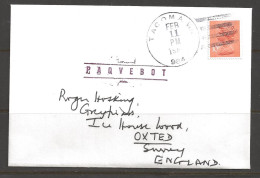 TACOMA
FEB
11
PM
PAQUEBOT
Roger Hosking,
Greypines,
Ice House Wood,
OXTED
Surrey
ENGLAND.